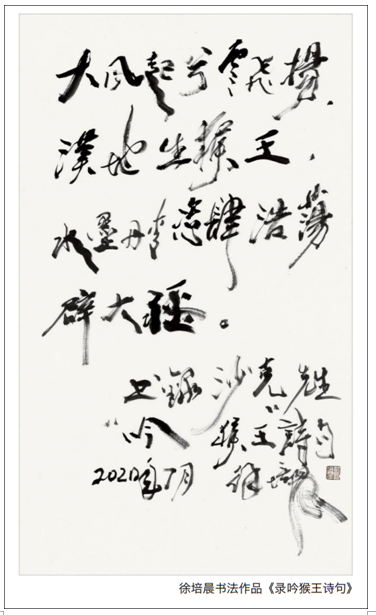 大风起兮雲飞
漢地生猴王，
水墨丹青恣肆浩蕩
辟大疆。
上録沙克先生
“吟猴王”詩句
2020年7月 徐培晨
徐培晨书法作品《录吟猴王诗句》